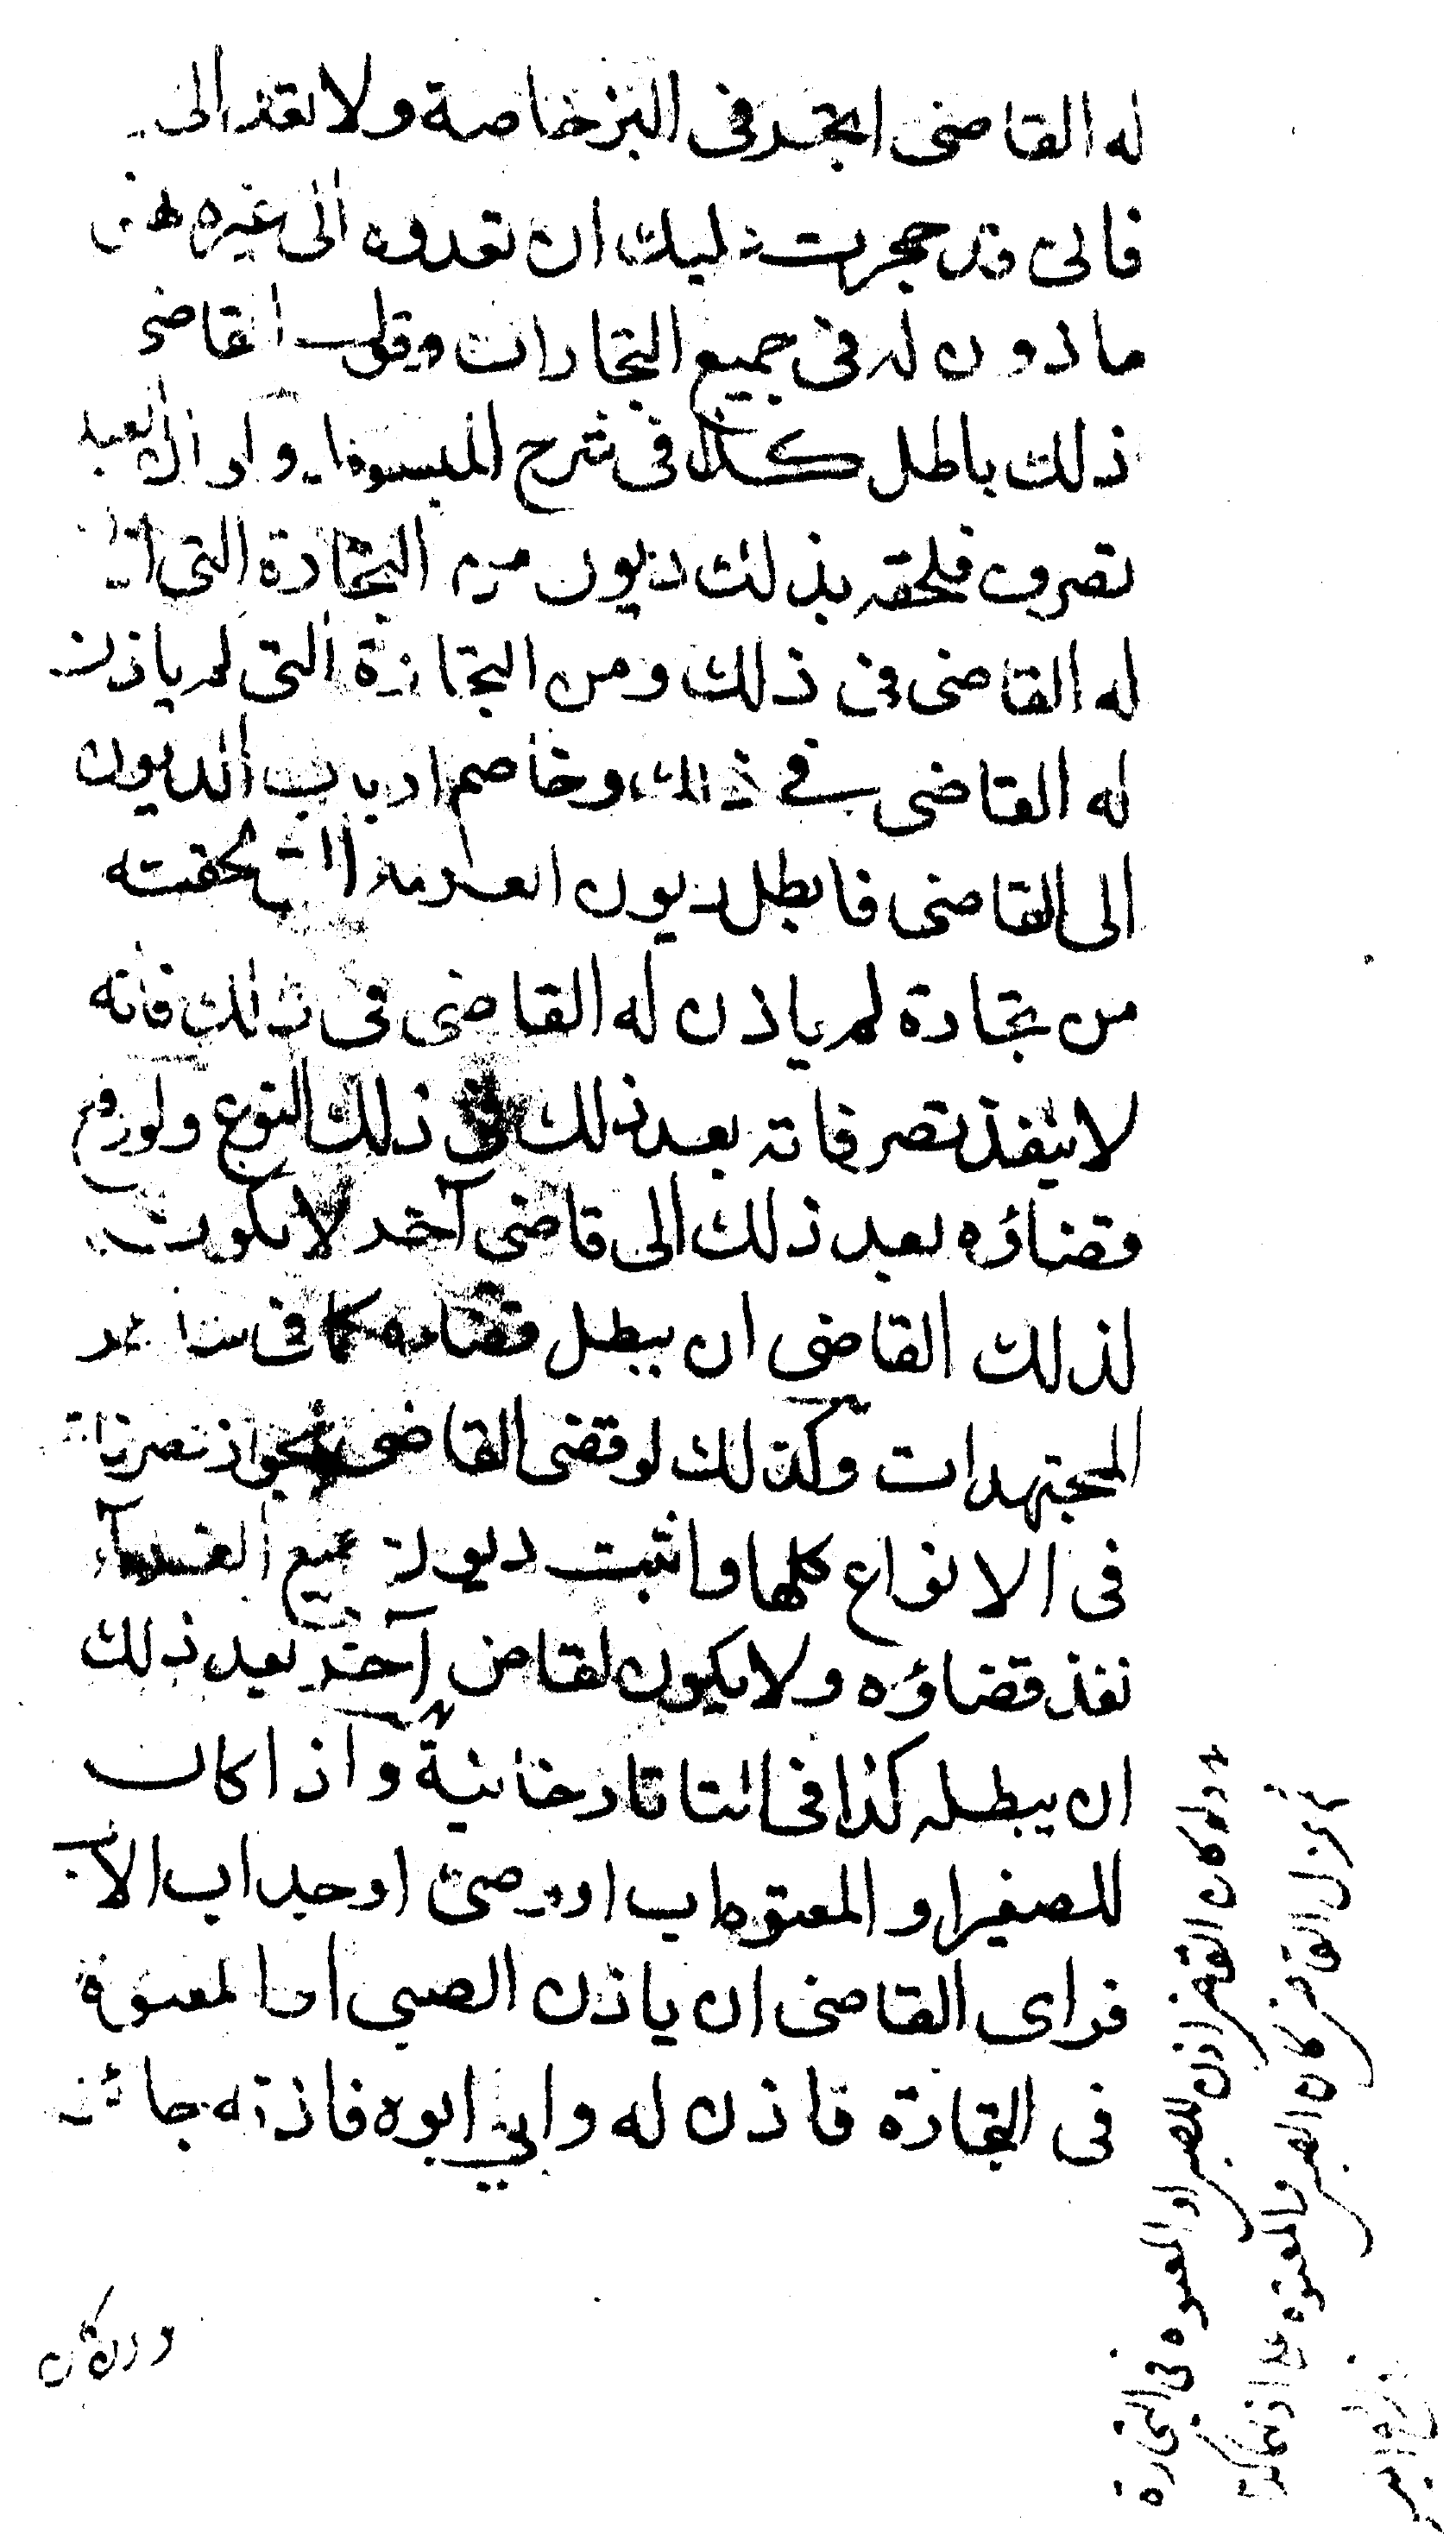 له القاضى اتجر فى البز خاصة ولا تعد الى
فانى قد حجرت عليك ان تعدوه الى غيره فهو
ماذون له فى جميع التجارات وقول القاضى
ذلك باطل كذا فى شرح المبسوط ولو ان العبد
تصرف فلحقه بذلك ديون من التجارة التى
له القاضى فى ذلك ومن التجارة التى لم ياذن
له القاضى فى ذلك وخاصم ارباب الديون
الى القاضى فابطل ديون الغرماء التى لحقته
من تجارة لم ياذن له القاضى فى ذلك فانه
لا ينفذ تصرفاته بعد ذلك فى ذلك النوع ولو رفع
قضاؤه بعد ذلك الى قاضى آخر لا يكون
لذلك القاضى ان يبطل قضاءه كما فى سائر
المجتهدات وكذلك لو قضى القاضى بجواز تصرفاته
فى الانواع كلها واثبت ديون جميع الغرمآء
نفذ قضاؤه ولا يكون لقاض آخر بعد ذلك
ان يبطله كذا فى التاتارخانية واذا كان
للصغير او المعتوه اب او وصى او جد اب الاب
فراى القاضى ان ياذن الصبى او المعتوه
فى التجارة فاذن له وابي ابوه فاذنه جائز
ولو كان القاضى اذن للصبى او المعتوه فى التجارة
ثم عزل القاضى كان الصبى والمعتوه على اذنهما
وان كان